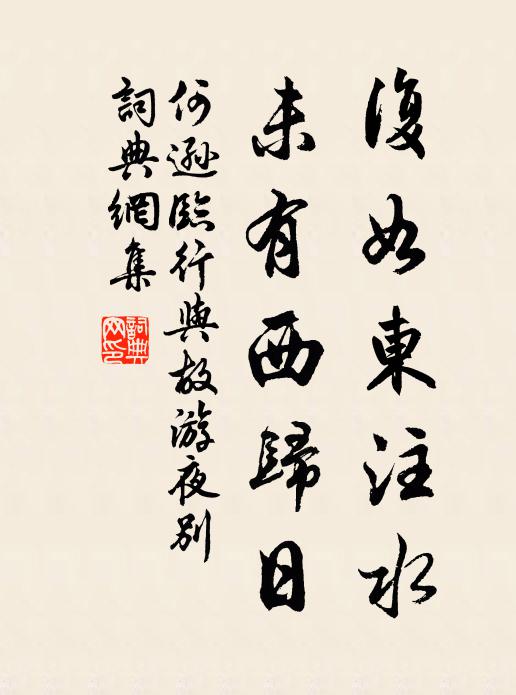 復如東注水
未有西歸日
何遜臨行與故游夜別
詞典網集
詞典網印